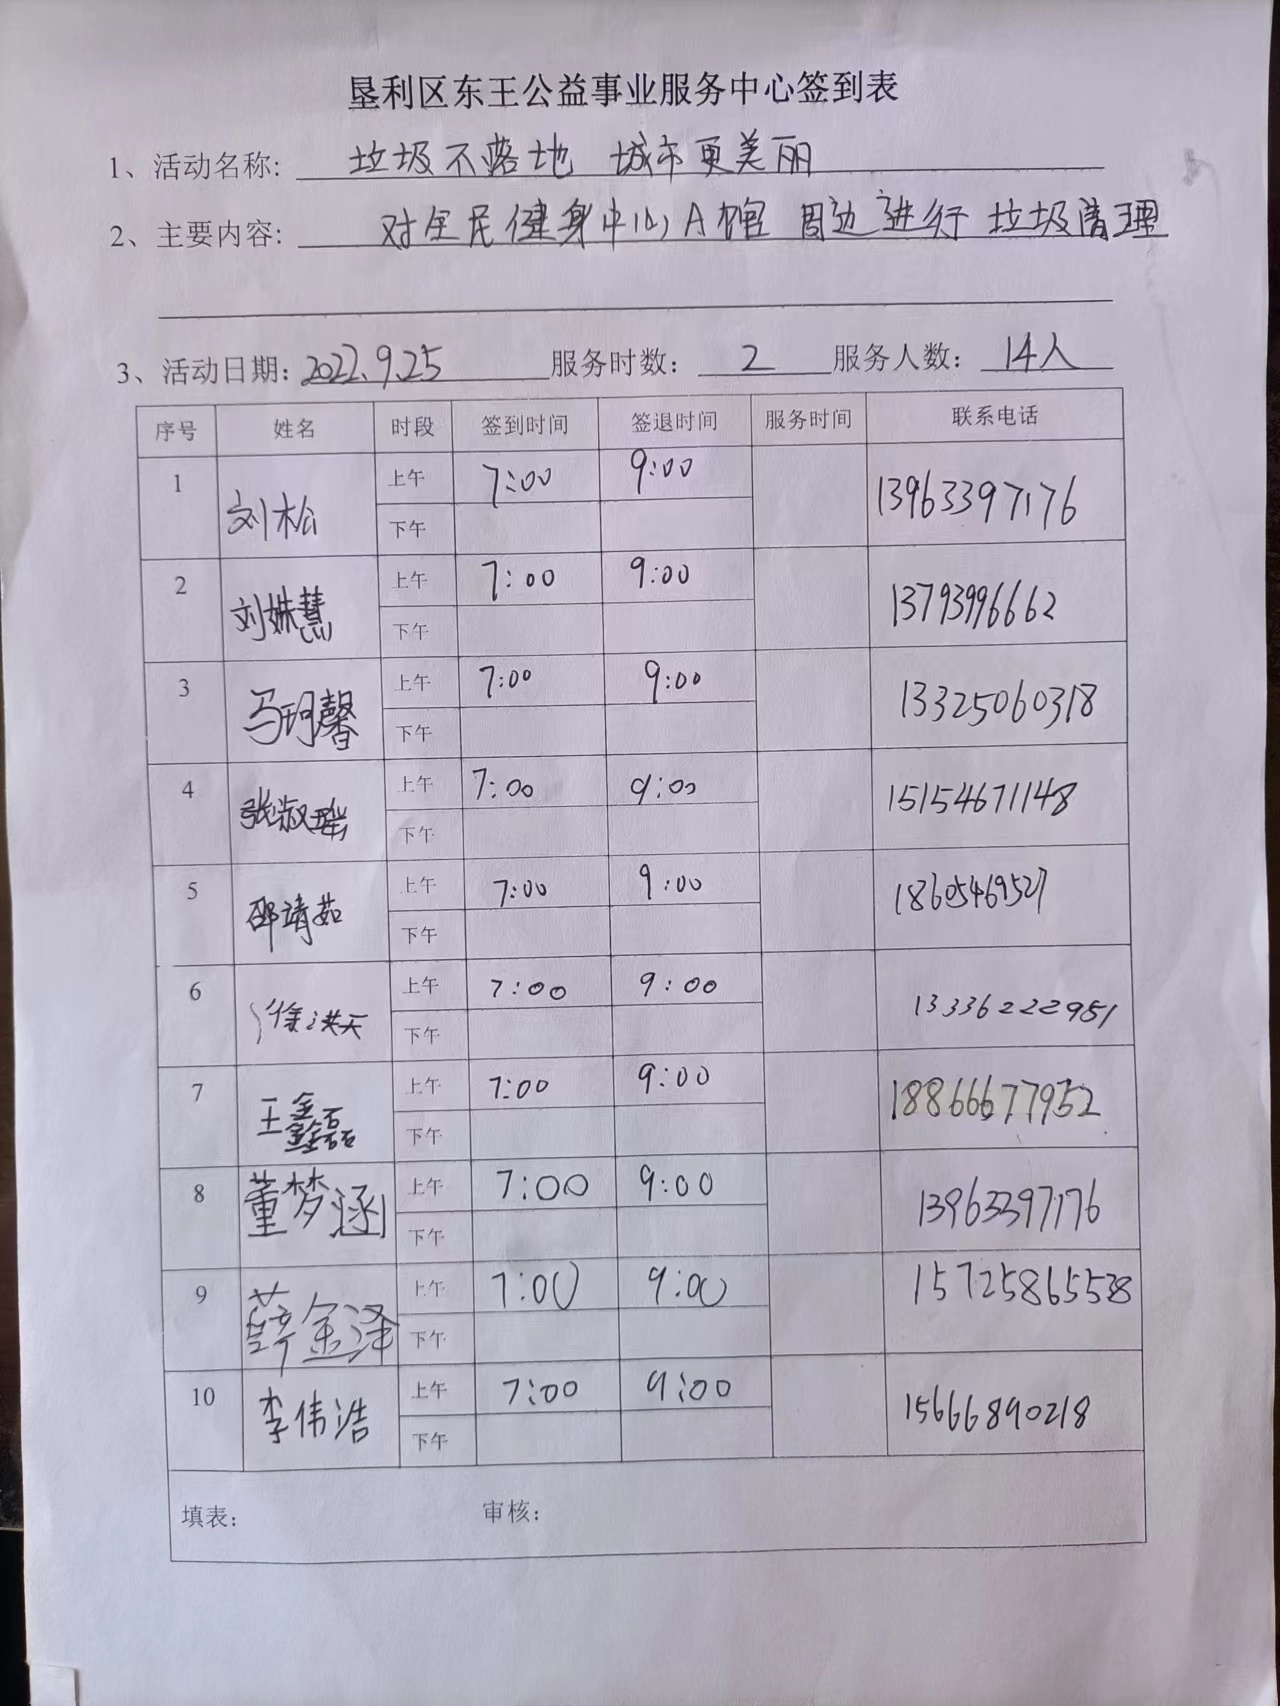 垦利区东王公益事业服务中心签到表
1、活动名称: 垃圾不落地 城市更美丽
2、主要内容: 对全民健身中心A馆 周边进行垃圾清理
3、活动日期: 2022.9.25 服务时数: 2 服务人数: 14人
序号 姓名 时段 签到时间 签退时间 服务时间 联系电话
1 刘松 上午 7:00 9:00 13963397176
下午
2 刘姝慧 上午 7:00 9:00 13793996662
下午
3 马珂馨 上午 7:00 9:00 13325060318
下午
4 张淑 上午 7:00 9:00 15154671148
下午
5 邵靖茹 上午 7:00 9:00 18605469527
下午
6 徐洪天 上午 7:00 9:00 13336222951
下午
7 王鑫磊 上午 7:00 9:00 18866677952
下午
8 董梦涵 上午 7:00 9:00 13963397176
下午
9 薛金泽 上午 7:00 9:00 15725865528
下午
10 李伟浩 上午 7:00 9:00 15666890218
下午
填表: 审核: